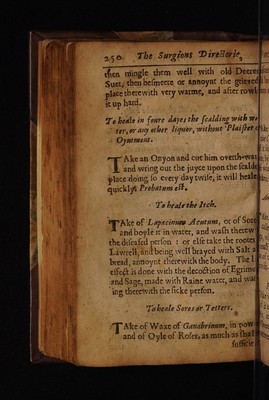 250 The Surgions Directorie,
then mingle them well with old Deere
Suet, then besmeere or annoynt the grieued
place therewith very warme, and after rowl
it up hard.
To heale in foure dayes the scalding with wa
ter, or any other liquor, without Plaister
Oyntment.
TAke an Onyon and cut him overth-wa
and wring out the juyce upon the scalde
place doing so every day twise, it will heale
quickly: Probatum est.
To heale the Itch.
TAke of Lapacinum Acutum, or of Sore
and boyle it in water, and wash therew
the diseased person : or else take the rootes
Lawrell, and being well brayed with Salt a
bread, annoynt therewith the body. The l
effect is done with the decoction of Egrimo
and Sage, made with Raine water, and wa
ing therewith the sicke person.
To heale Sores or Tetters.
TAke of Waxe of Ganabrinum, in pow
and of Oyle of Roses, as much as shal
suffic